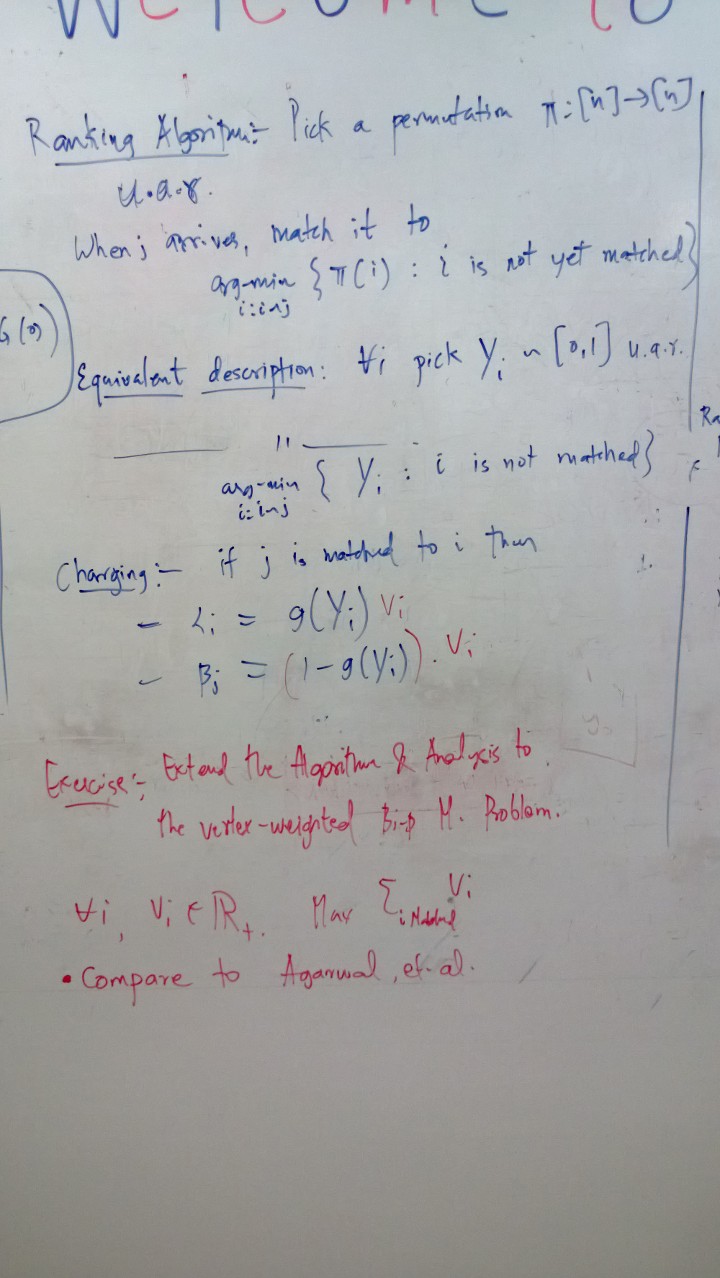 WELCOME TO
Ranking Algorithm:- Pick a permutation π:[n]→[n]
u.a.r.
When j arrives, match it to
arg-min {π(i) : i is not yet matched}
i:i~j
Equivalent description: ∀i pick Y_i ~ [0,1] u.a.r.
——— " ———
arg-min { Y_i : i is not matched}
i:i~j
Charging:- if j is matched to i then
- α_i = g(Y_i) V_i
- β_j = (1-g(Y_i)). V_i
Exercise:- Extend the Algorithm & Analysis to
the vertex-weighted Bi-p M. Problem.
∀i, V_i ∈ ℝ_+. Max Σ_{i Matched} V_i
• Compare to Agarwal, et. al.